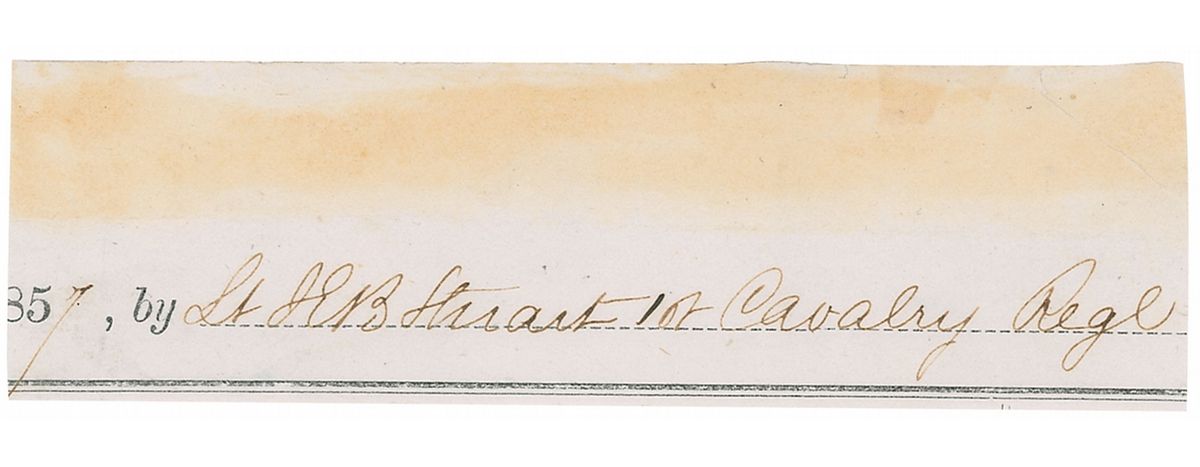 857, by Lt J E B Stuart 1st Cavalry Regl